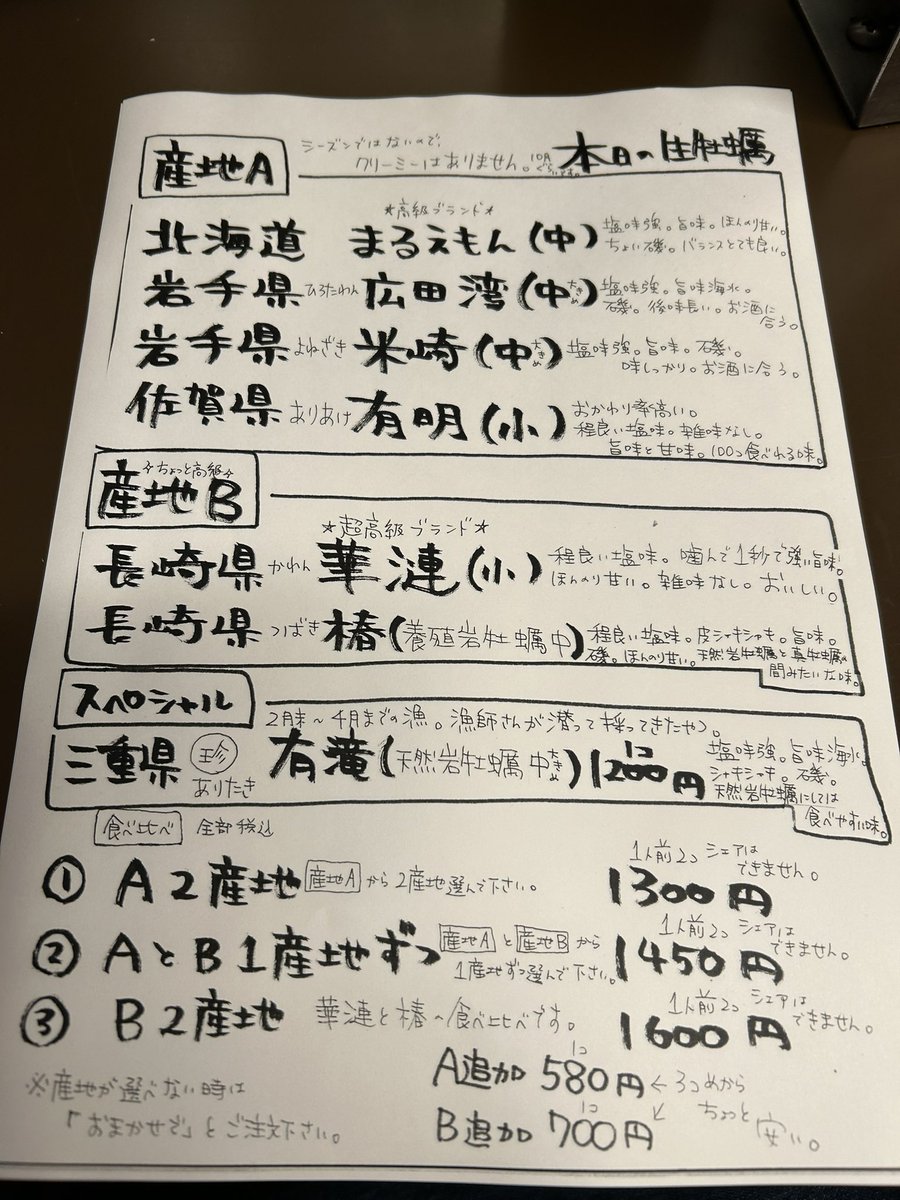 本日の生牡蠣
産地A
シーズンではないので、
クリーミーはありません。10月ぐらいです。
北海道 ★高級ブランド★ まるえもん(中) 塩味強。旨味。ほんのり甘い。
ちょい磯。バランスとても良い。
岩手県 ひろたわん 広田湾(中大きめ) 塩味強。旨味海水。
磯。後味長い。お酒に合う。
岩手県 よねざき 米崎(中大きめ) 塩味強。旨味。磯。
味しっかり。お酒に合う。
佐賀県 ありあけ 有明(小) おかわり率高い。
程良い塩味。雑味なし。
旨味と甘味。100コ食べれる味。
☆ちょっと高級☆
産地B
★超高級ブランド★
長崎県 かれん 華漣(小) 程良い塩味。噛んで1秒で強い旨味。
ほんのり甘い。雑味なし。おいしい。
長崎県 つばき 椿(養殖岩牡蠣中) 程良い塩味。皮シャキシャキ。旨味。
磯。ほんのり甘い。天然岩牡蠣と真牡蠣の
間みたいな味。
スペシャル
2月末～4月までの漁。漁師さんが潜って採ってきたやつ。
三重県 珍 ありたき 有滝(天然岩牡蠣中大きめ) 1コ 1200円 塩味強。旨味海水。
シャキシャキ。磯。
天然岩牡蠣にしては
食べやすい味。
食べ比べ 全部税込
① A2産地 産地Aから2産地選んで下さい。 1人前2コ シェアはできません。 1300円
② AとB1産地ずつ 産地Aと産地Bから
1産地ずつ選んで下さい。 1人前2コ シェアはできません。 1450円
③ B2産地 華漣と椿の食べ比べです。 1人前2コ シェアはできません。 1600円
A追加 1コ 580円 ←3つめから
B追加 1コ 700円 ↙ ちょっと安い。
※産地が選べない時は
「おまかせで」とご注文下さい。